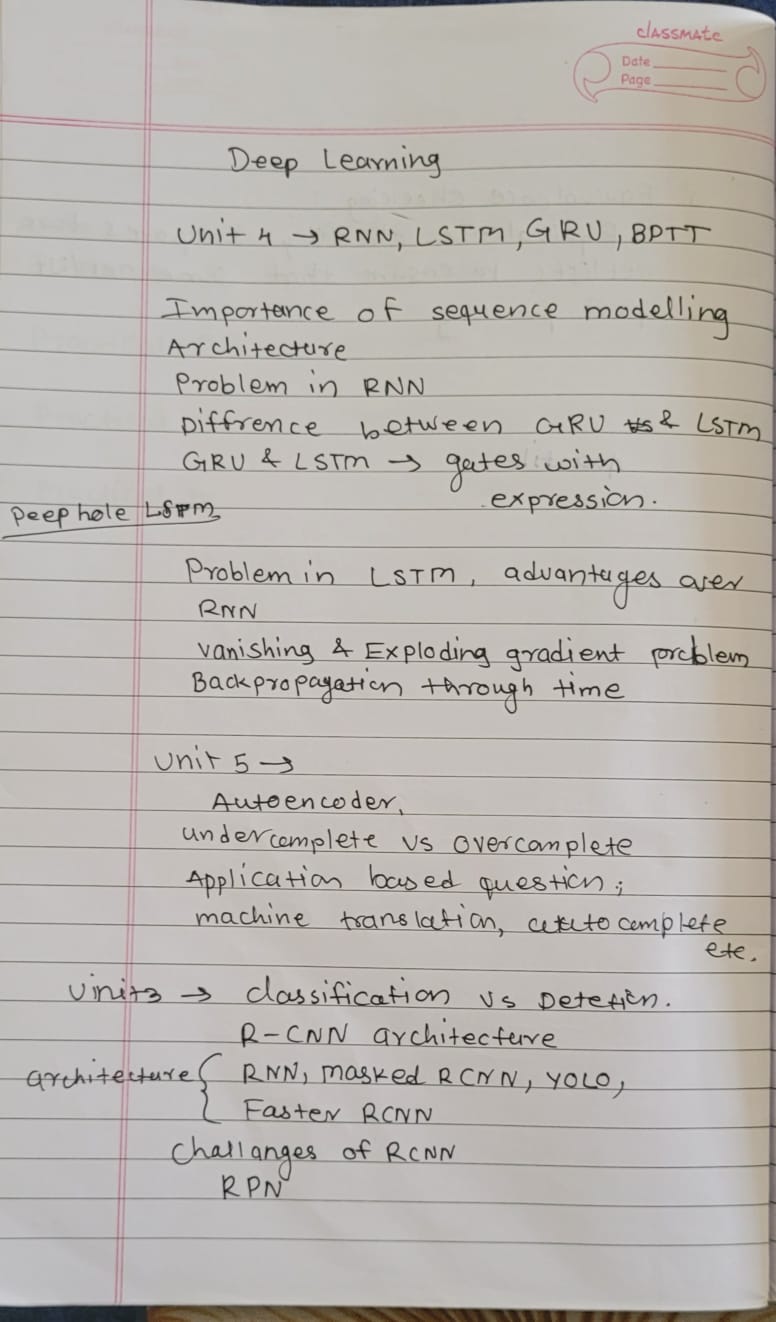 classmate
Date
Page
Deep Learning
Unit 4 → RNN, LSTM, GRU, BPTT
Importance of sequence modelling
Architecture
Problem in RNN
Diffrence between GRU & LSTM
GRU & LSTM → gates with
expression.
Peep hole LSTM
Problem in LSTM, advantages over
RNN
Vanishing & Exploding gradient problem
Backpropagation through time
Unit 5 →
Autoencoder,
undercomplete vs overcomplete
Application based question;
machine translation, autocomplete
etc.
Unit 3 → Classification vs Detetion.
R-CNN architecture
architecture { RNN, masked RCNN, YOLO,
Faster RCNN
Challanges of RCNN
RPN